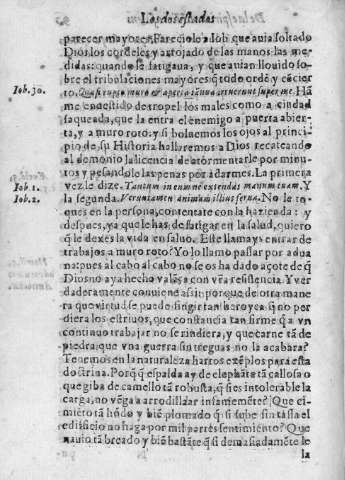 Los dos estados
parecer mayores. Pareciole a Iob que auia soltado
Dios los cordeles y arrojado de las manos las me-
didas quando se fatigaua, y que auian llouido so-
bre el tribulaciones mayores q̃ todo ordẽ y cõcier
Iob. 30.
to. Quasi rupto muro & aperta ianua irruerunt super me. Hã
me enuestido de tropel los males como a ciudad
saqueada, que la entra el enemigo a puerta abier-
ta, y a muro roto. y si boluemos los ojos al princi-
pio de su Historia hallaremos a Dios recateando
al demonio la licencia de atormentarle por minu-
tos y pesandole las penas por adarmes. La primera
Iob. 1.
vez le dize. Tantum in eum ne extendas manum tuam. Y
Iob. 2.
la segunda. Veruntamen animam illius serua. No le to-
ques en la persona, contentate con la hazienda: y
despues, ya que le has de fatigar en la salud, quiero
q̃ le dexes la vida en saluo. Este llamays entrar de
trabajos a muro roto? Yo lo llamo passar por adua
na: pues al cabo al cabo no se os ha dado açote de q̃
Dios no aya hecho valãça con vr̃a resistencia. Y ver
daderamente conuiene assi: porque de otra mane
ra que virtud se puede fingir tan heroyca q̃ no per
diera los estriuos, que constancia tan firme q̃ a vn
continuo trabajar no se rindiera, y que carne tã de
piedra que vna guerra sin treguas no la acabara?
Tenemos en la naturaleza hartos exẽplos para esta
doctrina. Porq̃ q̃ espalda ay de elephãte tã callosa o
que giba de camello tã robusta, q̃ si es intolerable la
carga, no vẽga a arrodillar infamemẽte? Que ci-
miẽto tã hõdo y biẽ plomado q̃ si sube sin tassa el
edificio no haga por mil partes sentimiẽto? Que
nauio tã breado y biẽ bastãte q̃ si demasiadamẽte le
la